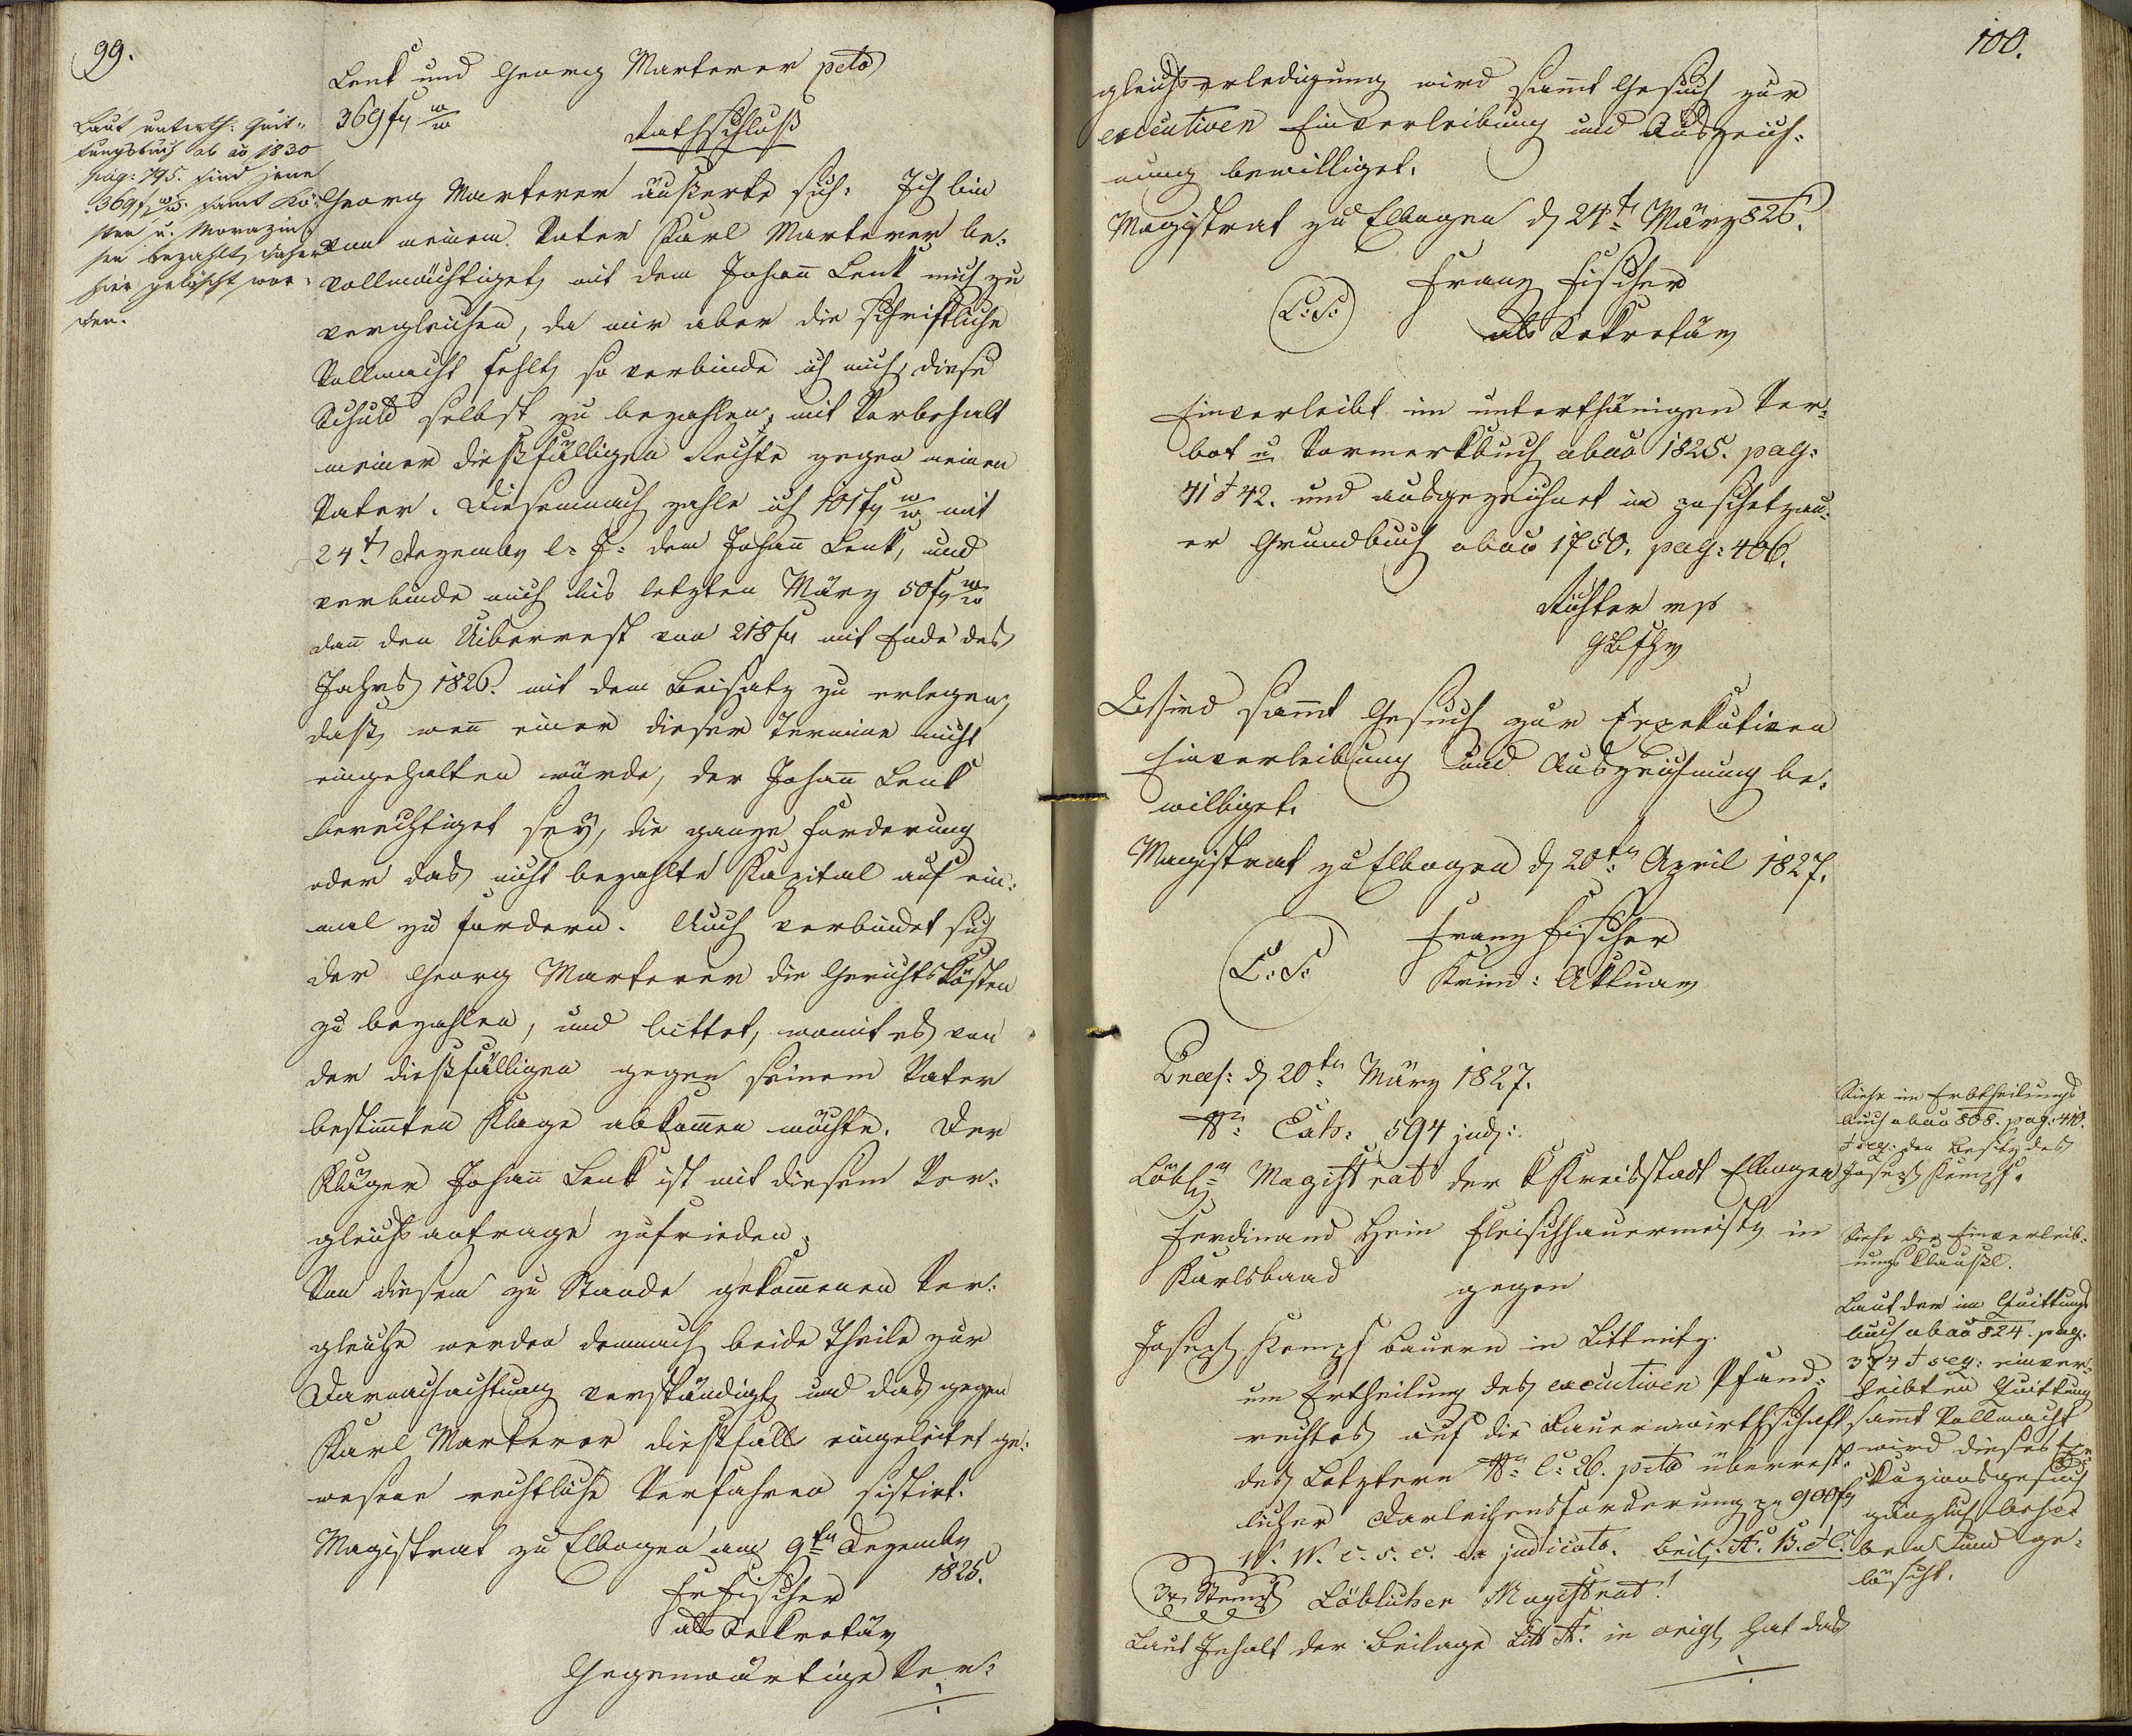 99.
Laut unterth: Quit-
tungsbuch ab aō 1830
pag: 795. sind jene
369f w/w. samt Kö-
sten u. 
sen bezahlt, daher
hier gelöscht wor-
den.
Lenk und Georg Marterer pcto
369 fr w/w
Rathschluß
Georg Marterer äußerte sich: Ich bin
von meinem Vater Karl Marterer be-
vollmächtiget, mit dem Johañ Lenk mich zu
vergleichen, da mir aber die schriftliche
Vollmacht fehlt, so verbinde ich mich, diese
Schuld selbst zu bezahlen, mit Vorbehalt
meiner dießfälligen Rechte gegen meinen
Vater. Diesemnach zahle ich 101 fr w/w mit
24t Dezember l: J: dem Johañ Lenk, und
verbinde mich bis letzten März 50 fr w/w
dañ den Uiberrest von 218 fr mit Ende des
Jahrs 1826. mit dem Beisatz zu erlegen,
daß, weñ einer dieser Termine nicht
eingehalten würde, der Johañ Lenk
berechtiget sey, die ganze Forderung
oder das nicht bezahlte Kapital auf ein-
mal zu fordern. Auch verbindet sich
der Georg Marterer die Gerichtskösten
zu bezahlen, und bittet, womit es von
der dießfälligen gegen seinem Vater
bestim̃ten Klage abkom̃en möchte. Der
Kläger Johañ Lenk ist mit diesem Ver-
gleichsantrage zufrieden.
Von diesem zu Stande gekom̃enen Ver-
gleiche werden demnach beide Theile zur
Darnachachtung verständigt, und das gegen
Karl Marterer dießfalls eingeleitet ge-
wesene rechtliche Verfahren sistirt.
Magistrat zu Elbogen am 9ten Dezember
1825.
Fr Fischer
als Sekretär
Gegenwärtige Ver-
100.
gleichserledigung wird sam̃t Gesuch zur
executiven Einverleibung und Auszeich-
nung bewilliget.
Magistrat zu Elbogen d 24t März 826.
L: S:
Franz Fischer
als Sekretär
Einverleibt im unterthänigen Ver-
bot u Vormerkbuch ab aō 1825. pag:
41 & 42. und ausgezeichnet im poschetzau-
er Grundbuch ab aō 1750. pag: 406.
Richter mp
Wird sam̃t Gesuch zur Exekutiven
Einverleibung und Auszeichnung be-
williget.
Magistrat zu Elbogen d 20ten April 1827.
L: S.
Franz Fischer
Krim: Aktuar
Praes: d 20ten März 1827.
Nr: Exh: 594 jud:
Löbl: Magistrat der k Kreisstadt Elbogen
Ferdinand Hein Fleischhauermeister in
Karlsbaad
gegen
Joseph Kempf Bauern in Littmitz.
um Ertheilung des executiven Pfand-
rechtes auf die Bauernwirthschaft
des Letztern Nr: C: 26. pcto überrest-
licher Darleihensforderung pr 900 fr
W. W. c. s. c. ex judicato. Beil: A. B. & C.
3xr Stempl
Löblicher Magistrat!
Laut Inhalt der Beilage Litt A. in origl hat das
Siehe im Erbtheilungs
buch ab aō 808. pag: 410.
& seq: den Besitz des
Joseph Kempf.
Siehe die Einverleib-
ungs Klausel.
Laut der im Quittungs
buch ab aō 824. pag.
374 & seq: einver-
leibten Quittung
sam̃t Vollmacht
wird dieses Exe-
kuzionsgesuch
gänzlich beho-
ben und ge-
löscht.